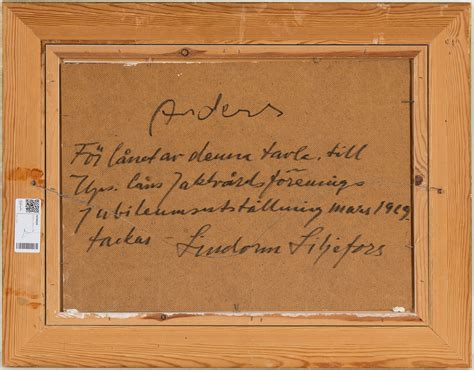 Anders
För lånet av denna tavla, till
Ups. läns Jaktvårdsförenings
Jubileumsutställning mars 1969
tackas - Lindorm Liljefors